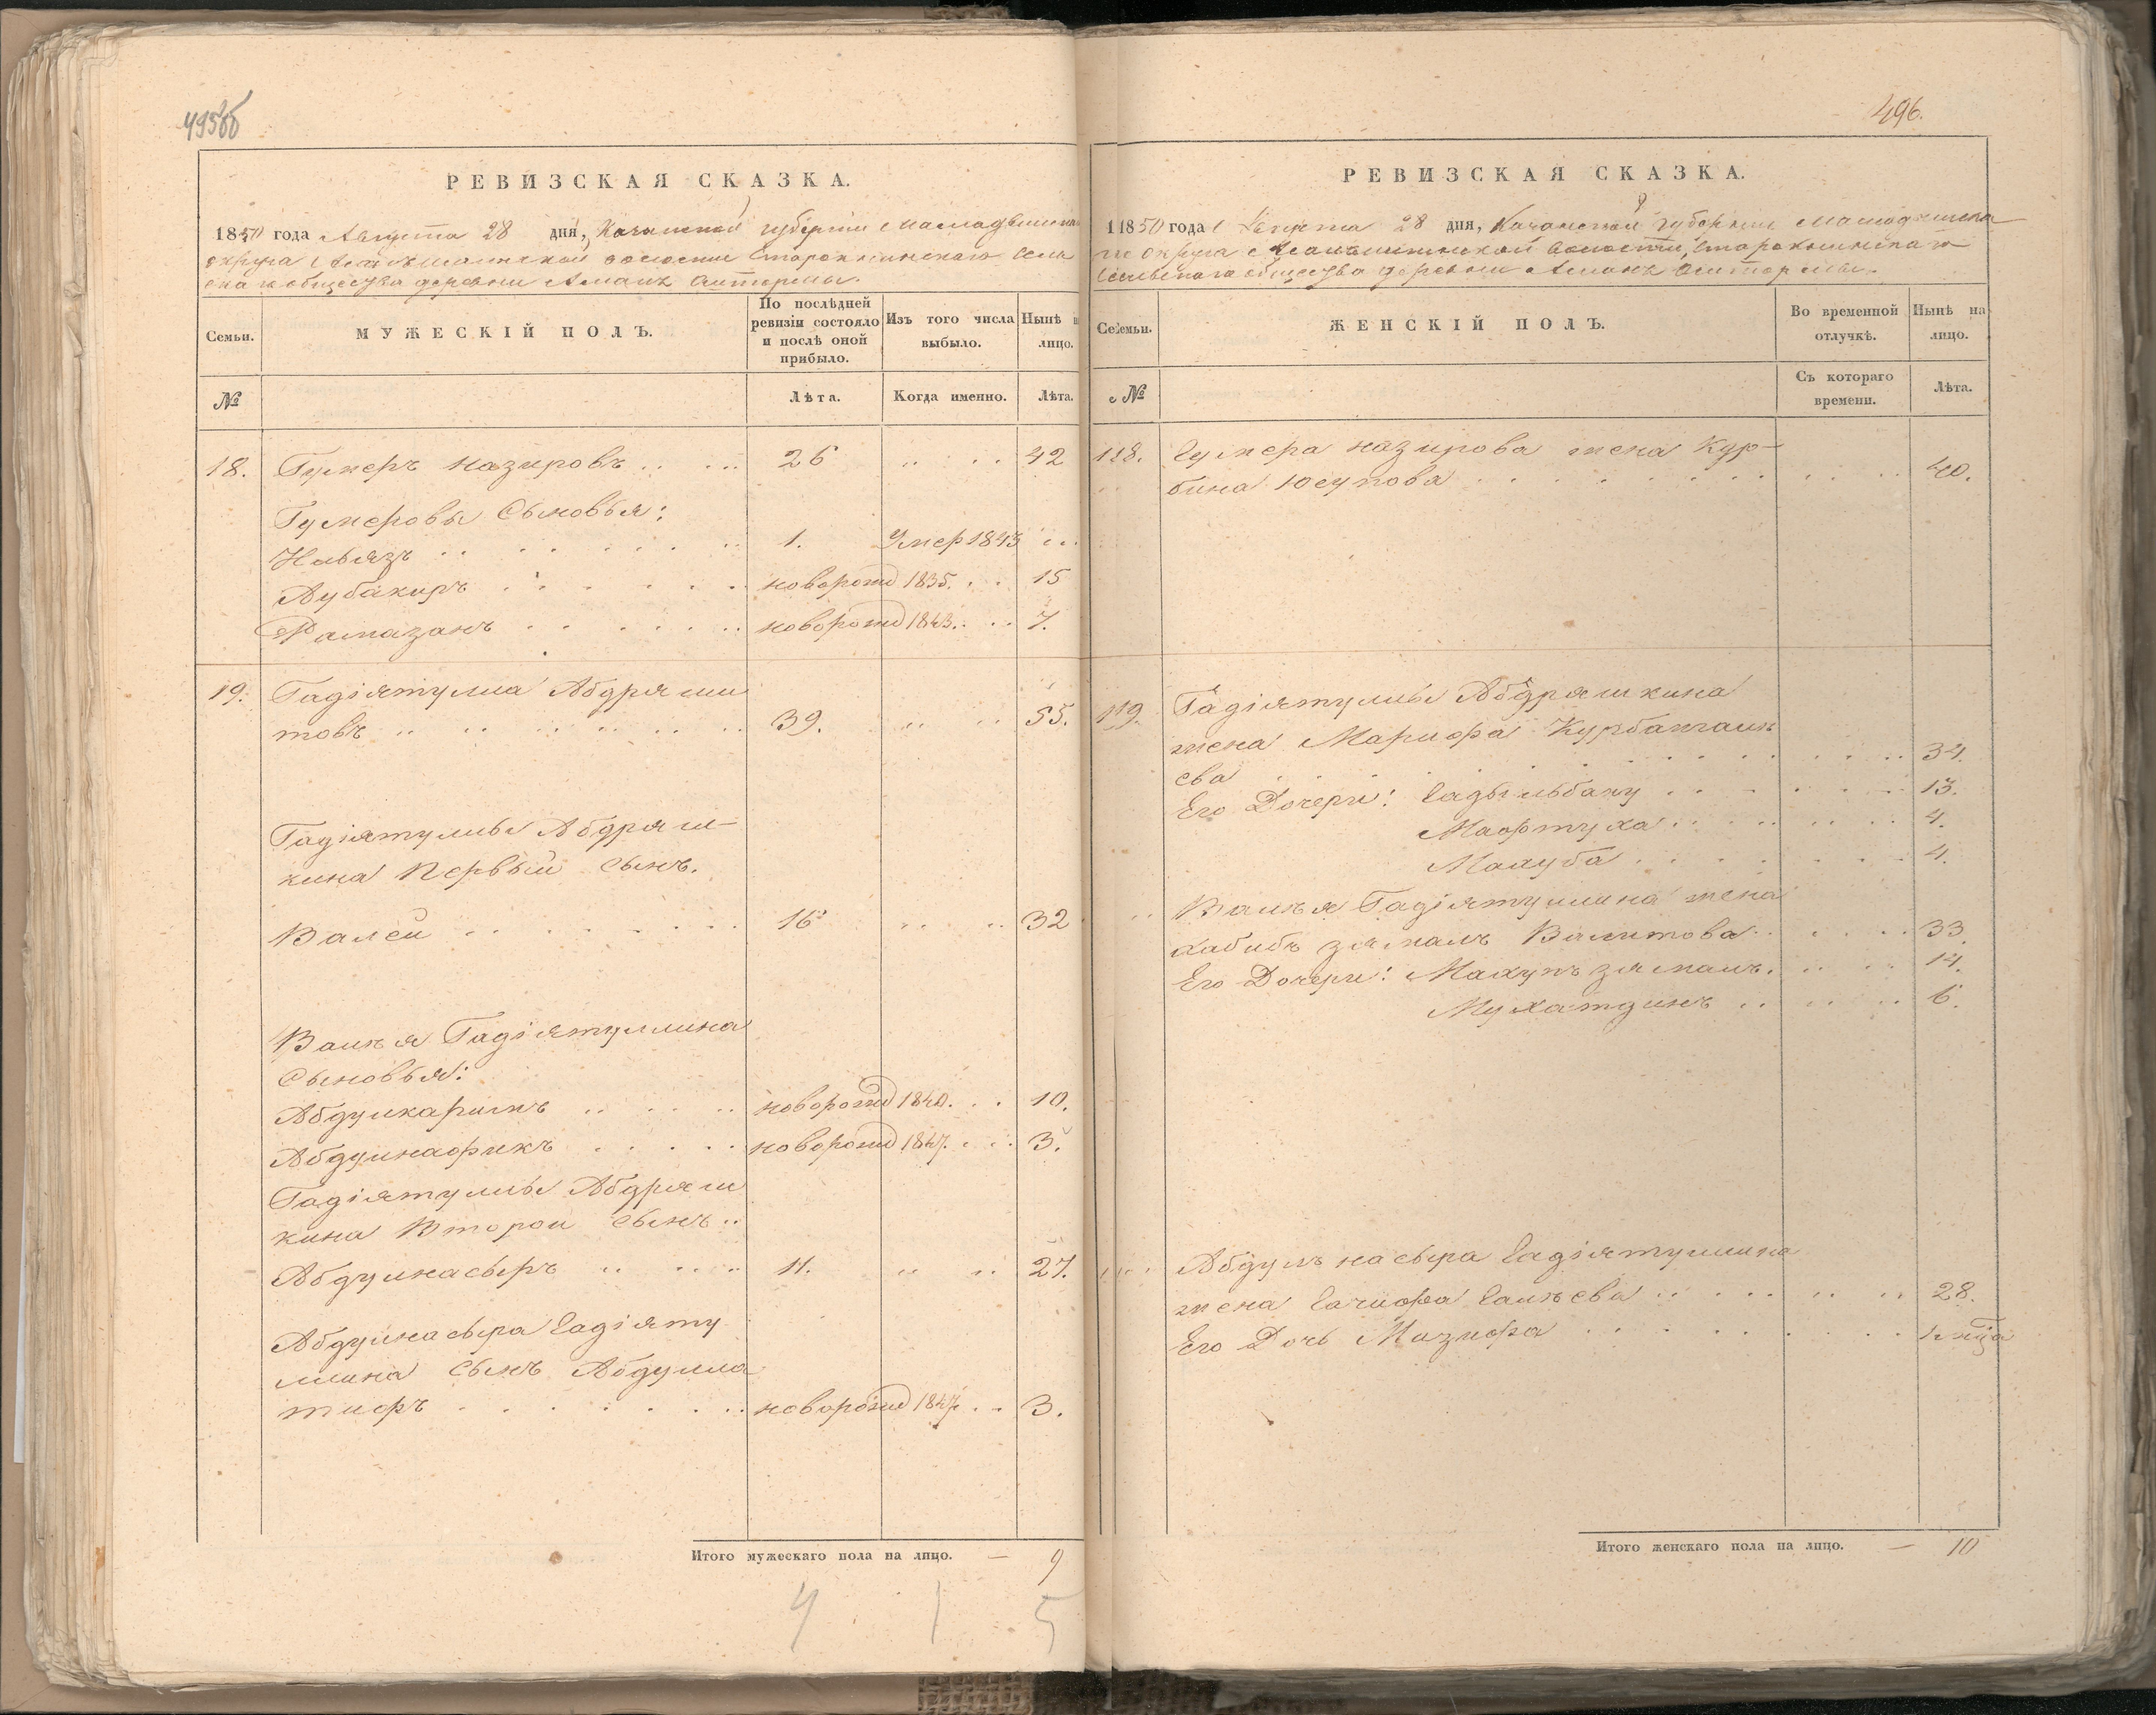 495об
РЕВИЗСКАЯ СКАЗКА.
1850 года Августа 28 дня, Казанской губернии Мамадышскаго
округа волости Староксинскаго Сель
скаго общества деревни
Семьи.
МУЖЕСКІЙ ПОЛЪ.
По послѣдней ревизіи состояло и послѣ оной прибыло.
Изъ того числа выбыло.
Нынѣ на лицо.
№
Лѣта.
Когда именно.
Лѣта.
18. Гумеръ Назировъ 26 42
Гумеровы Сыновья:
Ніязъ 1. Умер 1843
Аубакиръ новорожд 1835. 15
Рамазанъ новорожд 1843. 7.
19. Гадіятулла Абдряши
товъ 39. 55.
Гадіятуллы Абдряш-
кина Первый сынъ.
Валей 16 32
Валѣя Гадіятуллина
Сыновья:
Абдулкаримъ новорожд 1840. 10.
Абдулнафикъ новорожд 1847. 3.
Гадіятуллы Абдряш
кина Второй сынъ
Абдулнасыръ 11. 27.
Абдулнасыра Гадіяту
ллина сынъ Абдулла
тифъ новорожд 1847 3.
Итого мужескаго пола на лицо. — 9
4 1 5
496.
РЕВИЗСКАЯ СКАЗКА.
1850 года Августа 28 дня, Казанской губернии Мамадышска
го округа волости, Староксинскаго
Сельскаго общества деревни
Семьи.
ЖЕНСКІЙ ПОЛЪ.
Во временной отлучкѣ.
Нынѣ на лицо.
№
Съ котораго времени.
Лѣта.
18. Гумера Назирова жена Кур-
бина Юсупова 40.
19. Гадіятуллы Абдряшкина
жена Марифа Курбангалѣ
ева 34.
Его Дочери: Гадыльбану 13.
Мафтуха 4.
Махуба 4.
Валѣя Гадіятуллина жена
Хабибъ замалъ Валитова 33.
Его Дочери: Махупъ замалъ. 14.
Мухатдинъ 6.
Абдулъ насыра Гадіятуллина
жена Галѣева 28.
Его Дочь Мазифа
Итого женскаго пола на лицо. — 10